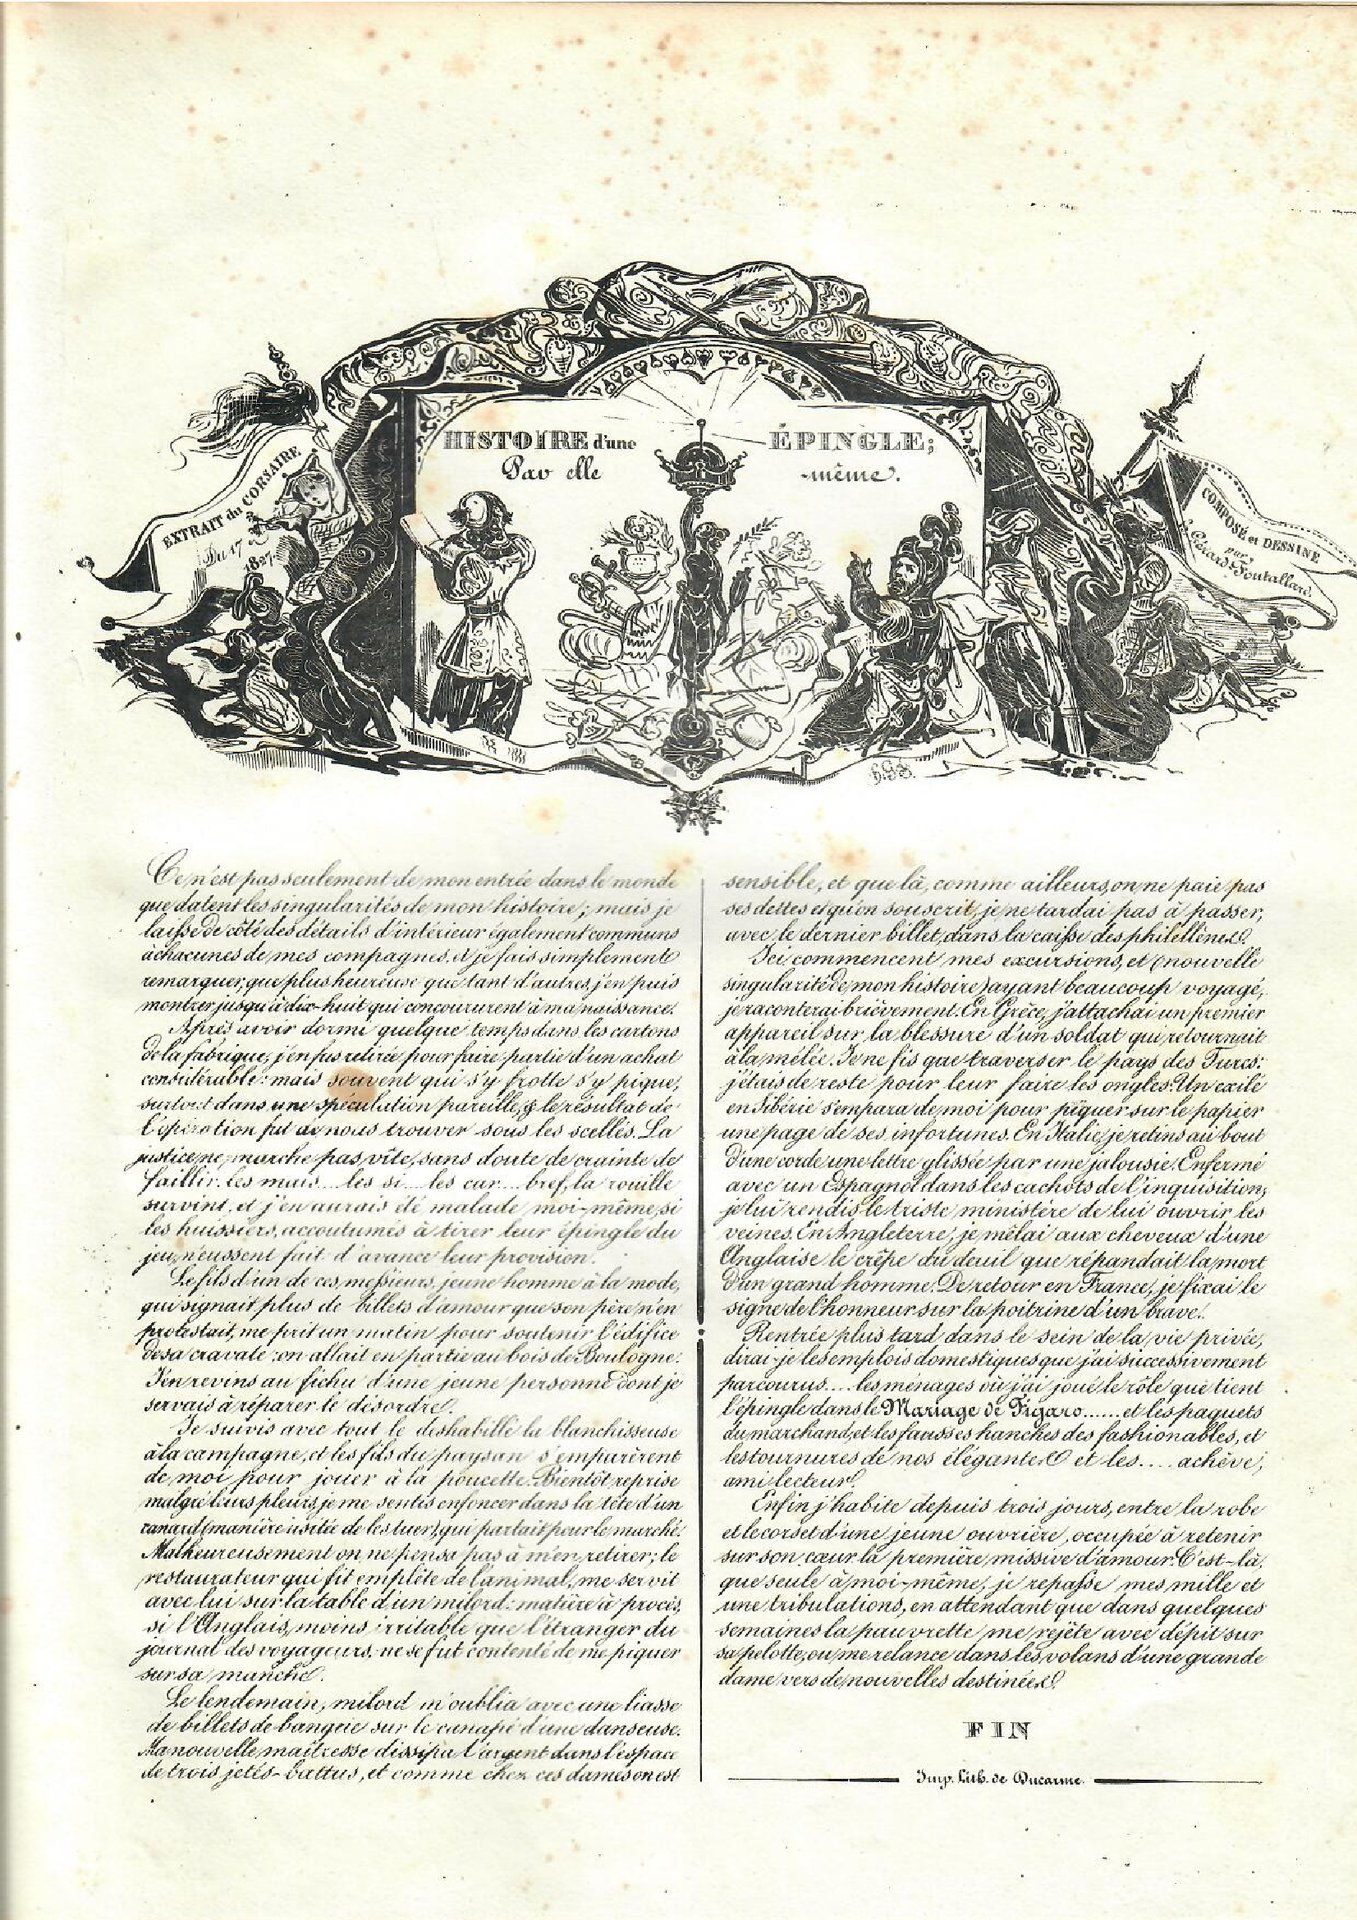 HISTOIRE d'une ÉPINGLE;
Par elle -même.
EXTRAIT du CORSAIRE
Du 17
1827
COMPOSÉ et DESSINÉ
par
Gérard-Fontallard.
Ce n'est pas seulement de mon entrée dans le monde
que datent les singularités de mon histoire; mais je
laisse de côté des détails d'intérieur également communs
à chacunes de mes compagnes, et je fais simplement
remarquer, que plus heureuse que tant d'autres, j'en puis
montrer jusqu'à dix-huit qui concoururent à ma naissance.
Après avoir dormi quelque temps dans les cartons
de la fabrique, j'en fus retirée pour faire partie d'un achat
considérable: mais souvent qui s'y frotte s'y pique,
surtout dans une spéculation pareille, & le résultat de
l'opération fut de nous trouver sous les scellés. La
justice ne marche pas vîte, sans doute de crainte de
faillir. les mais.... les si.... les car.... bref, la rouille
survint, et j'en aurais été malade moi-même, si
les huissiers, accoutumés à tirer leur épingle du
jeu, n'eussent fait d'avance leur provision.
Le fils d'un de ces messieurs, jeune homme à la mode,
qui signait plus de billets d'amour que son père n'en
protestait, me prit un matin pour soutenir l'édifice
de sa cravate: on allait en partie au bois de Boulogne.
J'en revins au fichu d'une jeune personne dont je
servais à réparer le désordre.
Je suivis avec tout le deshabillé la blanchisseuse
à la campagne, et les fils du paysan s'emparèrent
de moi pour jouer à la poucette. Bientôt reprise
malgré leurs pleurs, je me sentis enfoncer dans la tête d'un
canard (manière usitée de les tuer), qui partait pour le marché.
Malheureusement on ne pensa pas à m'en retirer; le
restaurateur qui fit emplète de l'animal, me servit
avec lui sur la table d'un milord: matière à procès,
si l'Anglais, moins irritable que l'étranger du
journal des voyageurs, ne se fut contenté de me piquer
sur sa manche.
Le lendemain, milord m'oublia avec une liasse
de billets de banque sur le canapé d'une danseuse.
Ma nouvelle maîtresse dissipa l'argent dans l'espace
de trois jetés-battus, et comme chez ces dames on est
sensible, et que là, comme ailleurs, on ne paie pas
ses dettes et qu'on souscrit, je ne tardai pas à passer,
avec le dernier billet, dans la caisse des philellènes.
Ici commencent mes excursions, et (nouvelle
singularité de mon histoire) ayant beaucoup voyagé,
je raconterai brièvement. En Grèce, j'attachai un premier
appareil sur la blessure d'un soldat qui retournait
à la mêlée. Je ne fis que traverser le pays des Turcs:
j'étais de reste pour leur faire les ongles. Un exilé
en Sibérie s'empara de moi pour piquer sur le papier
une page de ses infortunes. En Italie, je retins au bout
d'une corde une lettre glissée par une jalousie. Enfermé
avec un Espagnol dans les cachots de l'inquisition,
je lui rendis le triste ministère de lui ouvrir les
veines. En Angleterre, je mêlai aux cheveux d'une
Anglaise le crêpe du deuil que répandait la mort
d'un grand homme. De retour en France, je fixai le
signe de l'honneur sur la poitrine d'un brave.
Rentrée plus tard dans le sein de la vie privée,
dirai-je les emplois domestiques que j'ai successivement
parcourus.... les ménages où j'ai joué le rôle que tient
l'épingle dans le Mariage de Figaro...... et les paquets
du marchand, et les fausses hanches des fashionables, et
les tournures de nos élégantes et les.... achève,
ami lecteur.
Enfin j'habite depuis trois jours, entre la robe
et le corset d'une jeune ouvrière, occupée à retenir
sur son cœur la première missive d'amour. C'est-là,
que seule à moi-même, je repasse mes mille et
une tribulations, en attendant que dans quelques
semaines la pauvrette me rejète avec dépit sur
sa pelotte, ou me relance dans les volans d'une grande
dame vers de nouvelles destinées.
FIN
Imp. Lith. de Ducarme.